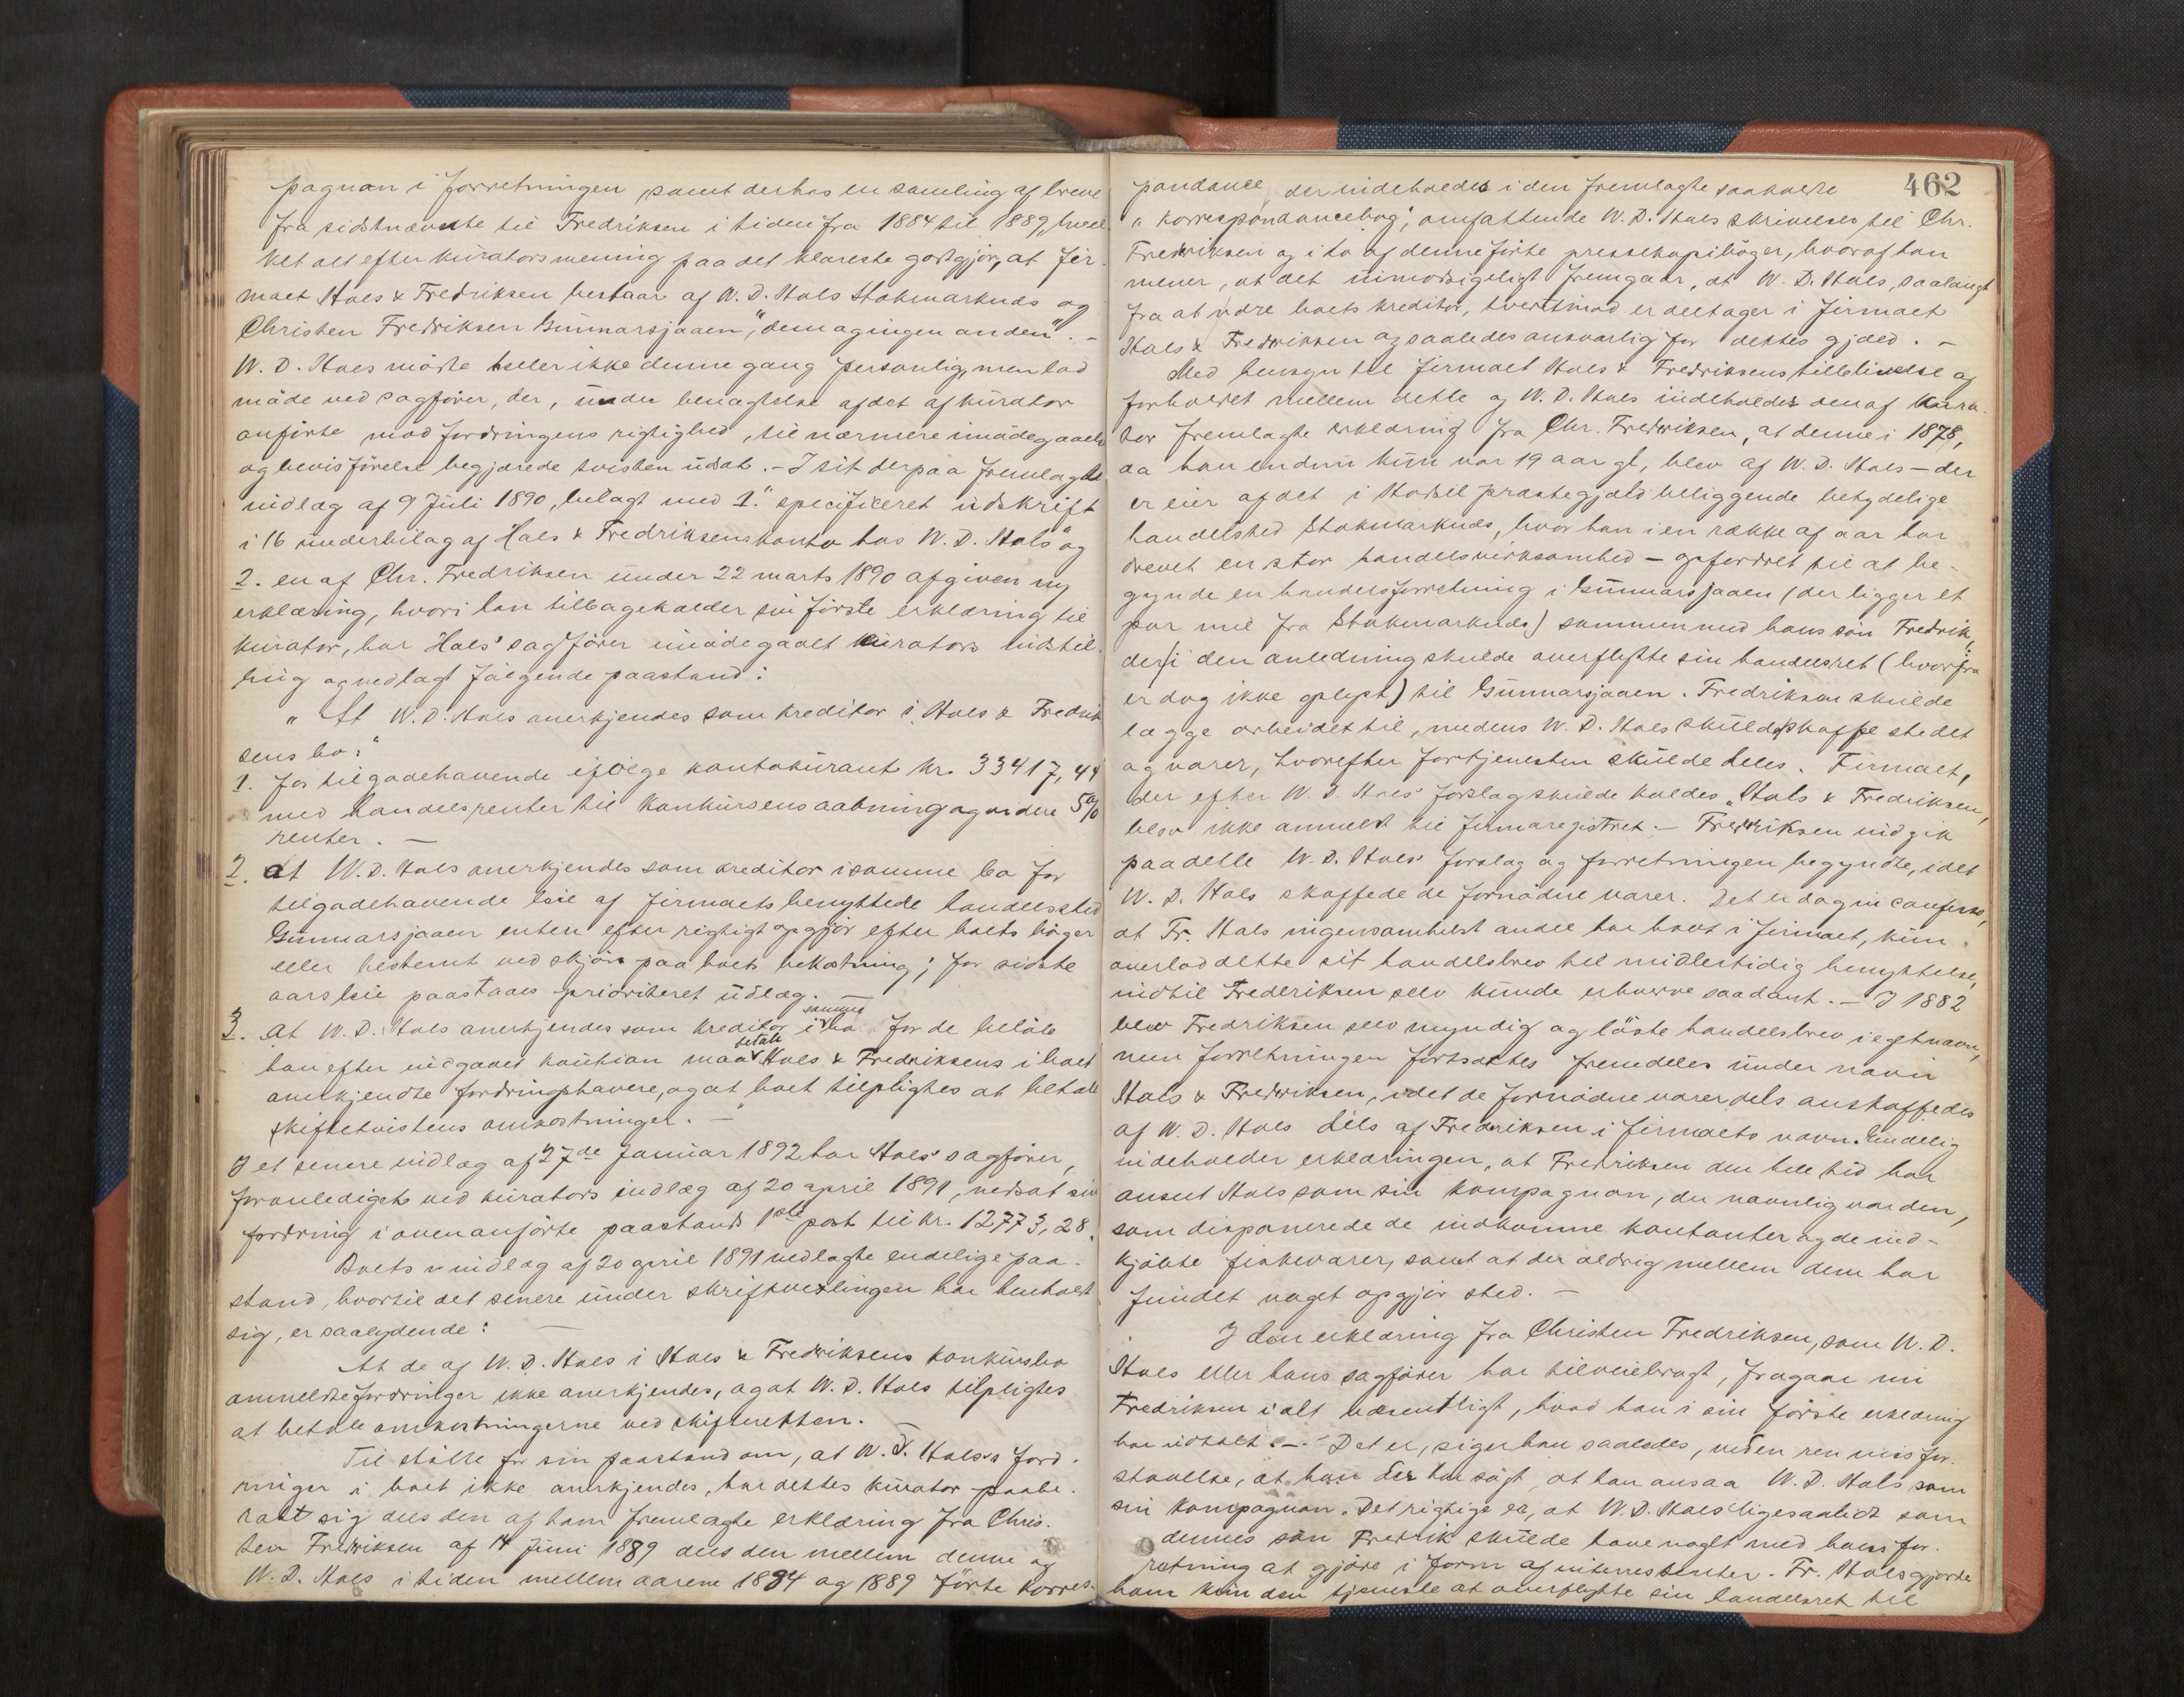 pagnon i forretningen samt derhos en samling af breve
fra sidstnævnte til Fredriksen i tiden fra 1884 til 1889, hvil
ket alt efter kurators mening paa det klareste godtgjør, at fir-
maet Hals & Fredriksen bestaar af W. D. Hals Stokmarknæs og
Christen Fredriksen Gunnarsjaaen, "dem og ingen anden". -
W. D. Hals mødte heller ikke denne gang personlig, men lod
møde ved sagfører, der, under benægtelse af det af kurator
anførte mod fordringens rigtighed, til nærmere imødegaaelse
og bevisførelse begjærede tvisten udsat. - I sit derpaa fremlagte
indlæg af 9 Juli 1890, bilagt med 1. "specificeret udskrift
i 16 underbilag af Hals & Fredriksens konto hos W. D. Hals" og
2. en af Chr. Fredriksen under 22 marts 1890 afgiven ny
erklæring, hvori han tilbagekalder sin første erklæring til
kurator, har Hals' sagfører imødegaaet kurators indstil-
ling og nedlagt følgende paastand:
" At W. D. Hals anerkjendes som kreditor i Hals & Fredrik
sens bo:"
1. for tilgodehavende ifølge kontokurant kr. 33417,44
med handelsrenter til konkursens aabning og videre 5%
renter. -
2. at W. D. Hals anerkjendes som kreditor i samme bo for
tilgodehavende leie af firmaets benyttede handelssted
Gunnarsjaaen enten efter rigtigt opgjør efter boets bøger
eller bestemt ved skjøn paa boets bekostning; for sidste
aars leie paastaaes prioriteret udlæg. -
3. at W. D. Hals anerkjendes som kreditor i samme bo for de beløb
han efter indgaaet kaution maa betale Hals & Fredriksens i boet
anerkjendte fordringshavere, og at boet tilpligtes at betale
skiftetvistens omkostninger. - "
I et senere indlæg af 27de Januar 1892 har Hals' sagfører,
foranlediget ved kurators indlæg af 20 april 1891, nedsat sin
fordring i ovenanførte paastands 1ste post til kr. 12773,28.
Boets i indlæg af 20 april 1891 nedlagte endelige paa-
stand, hvortil det senere under skriftvexlingen har henholdt
sig, er saalydende: -
At de af W. D. Hals i Hals & Fredriksens konkursbo
anmeldte fordringer ikke anerkjendes, og at W. D. Hals tilpligtes
at betale omkostningerne ved skifteretten.
Til støtte for sin paastand om, at W. D. Hals's ford-
ringer i boet ikke anerkjendes, har dettes kurator paabe-
raabt sig dels den af ham fremlagte erklæring fra Chris-
ten Fredriksen af 14 Juni 1889 dels den mellem denne og
W. D. Hals i tiden mellem aarene 1884 og 1889 førte korres-
462
pondance, der indeholdes i den fremlagte saakaldte
"korrespondancebog", omfattende W. D. Hals skrivelser til Chr.
Fredriksen og i to af denne førte pressekopibøger, hvoraf han
mener, at det uimodsigeligt fremgaar, at W. D. Hals, saalangt
fra at være boets kreditor, tvertimod er deltager i firmaet
Hals & Fredriksen og saaledes ansvarlig for dettes gjæld. -
Med hensyn til firmaet Hals & Fredriksens tilblivelse og
forholdet mellem dette og W. D. Hals indeholdes den af kura-
tor fremlagte erklæring fra Chr. Fredriksen, at denne i 1878,
da han endnu kun var 19 aar gl, blev af W. D. Hals - der
er eier af det i Hadsel præstegjæld beliggende betydelige
handelssted Stokmarknæs, hvor han i en række af aar har
drevet en stor handelsvirksomhed - opfordret til at be-
gynde en handelsforretning i Gunnarsjaaen (der ligger et
par mil fra Stokmarknæs) sammen med hans søn Fredrik,
der i den anledning skulde overflytte sin handelsret (hvorfra
er dog ikke oplyst) til Gunnarsjaaen. Fredriksen skulde
lægge arbeidet til, medens W. D. Hals skulde skaffe stedet
og varer, hvorefter fortjenesten skulde deles. Firmaet,
der efter W. D. Hals' forslag skulde kaldes "Hals & Fredriksen,
blev ikke anmeldt til firmaregistret. - Fredriksen indgik
paa dette W. D. Hals' forslag og forretningen begyndte, idet
W. D. Hals skaffede de fornødne varer. Det er dog in confesso,
at Fr. Hals ingensomhelst andel har havt i firmaet, kun
overlod dette sit handelsbrev til midlertidig benyttelse,
indtil Frederiksen selv kunde erhverve saadant. - I 1882
blev Fredriksen selv myndig og løste handelsbrev i eget navn,
men forretningen fortsattes fremdeles under navn
Hals & Fredriksen, idet de fornødne varer dels anskaffedes
af W. D. Hals dels af Fredriksen i firmaets navn. Endelig
indeholder erklæringen, at Fredriksen den hele tid har
anseet Hals som sin kompagnon, der navnlig var den,
som disponerede de indkomne kontanter og de ind-
kjøbte fiskevarer, samt at der aldrig mellem dem har
fundet noget opgjør sted. -
I den erklæring fra Christen Fredriksen, som W. D.
Hals eller hans sagfører har tilveiebragt, fragaar nu
Fredriksen i alt væsentligt, hvad han i sin første erklæring
har udtalt. - Det er, siger han saaledes, uden ren misfor-
staaelse, at han der har sagt, at han ansaa W. D. Hals som
sin kompagnon. Det rigtige er, at W. D. Hals ligesaalidt som
dennes søn Fredrik skulde have noget med hans for-
retning at gjøre i form af interessenter. Fr. Hals gjorde
ham kun den tjeneste at overflytte sin handelsret til